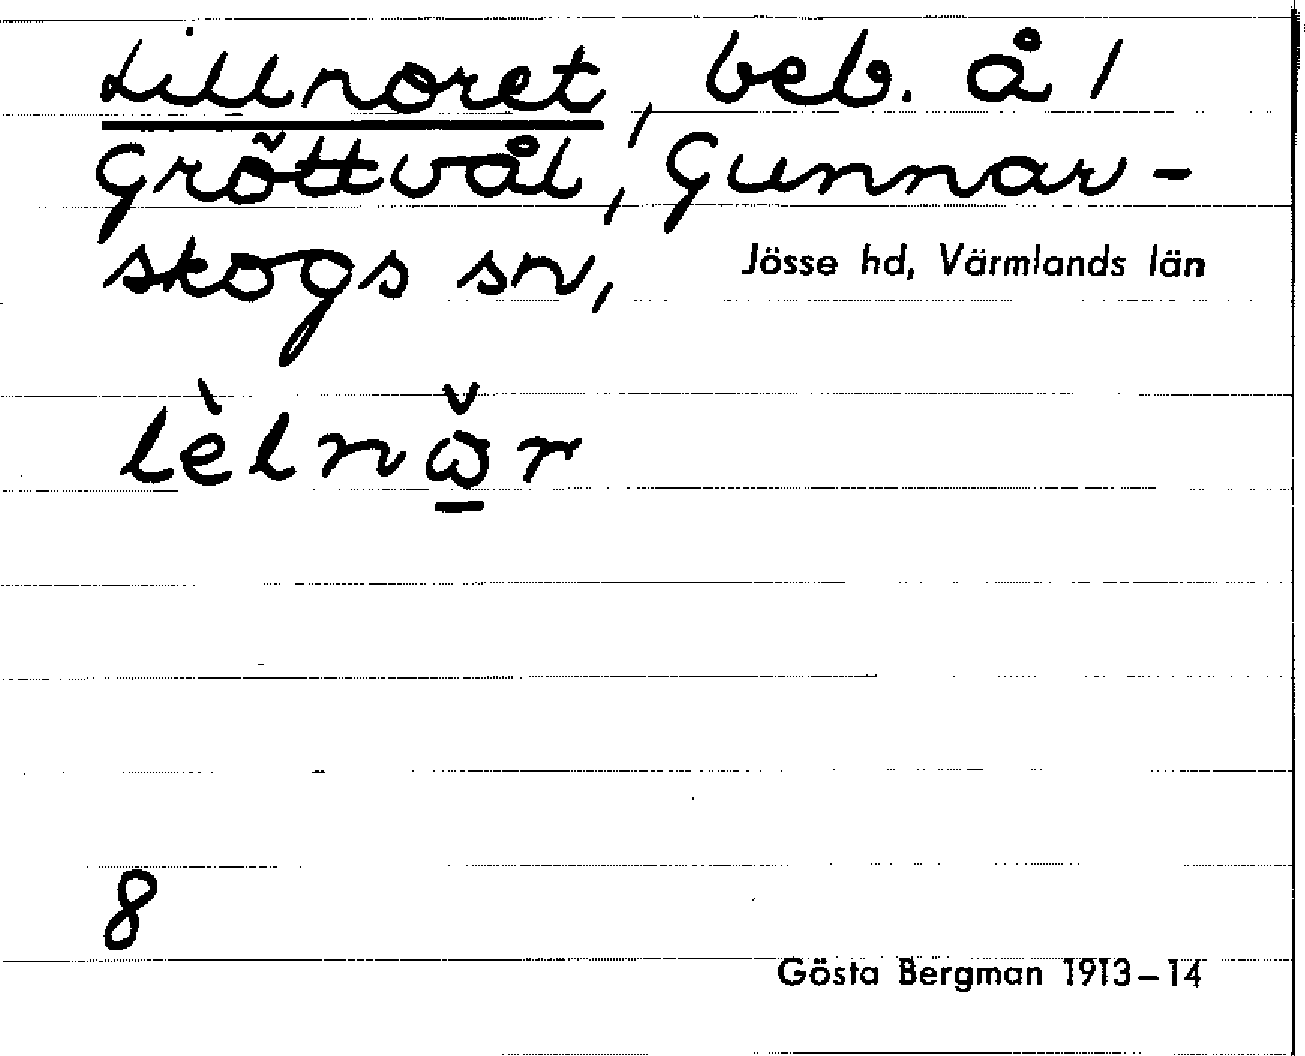 Lillnoret, beb. å /
Gröttvål, Gunnar-
skogs sn, Jösse hd, Värmlands län
lèlnω̲̌r
8
Gösta Bergman 1913–14